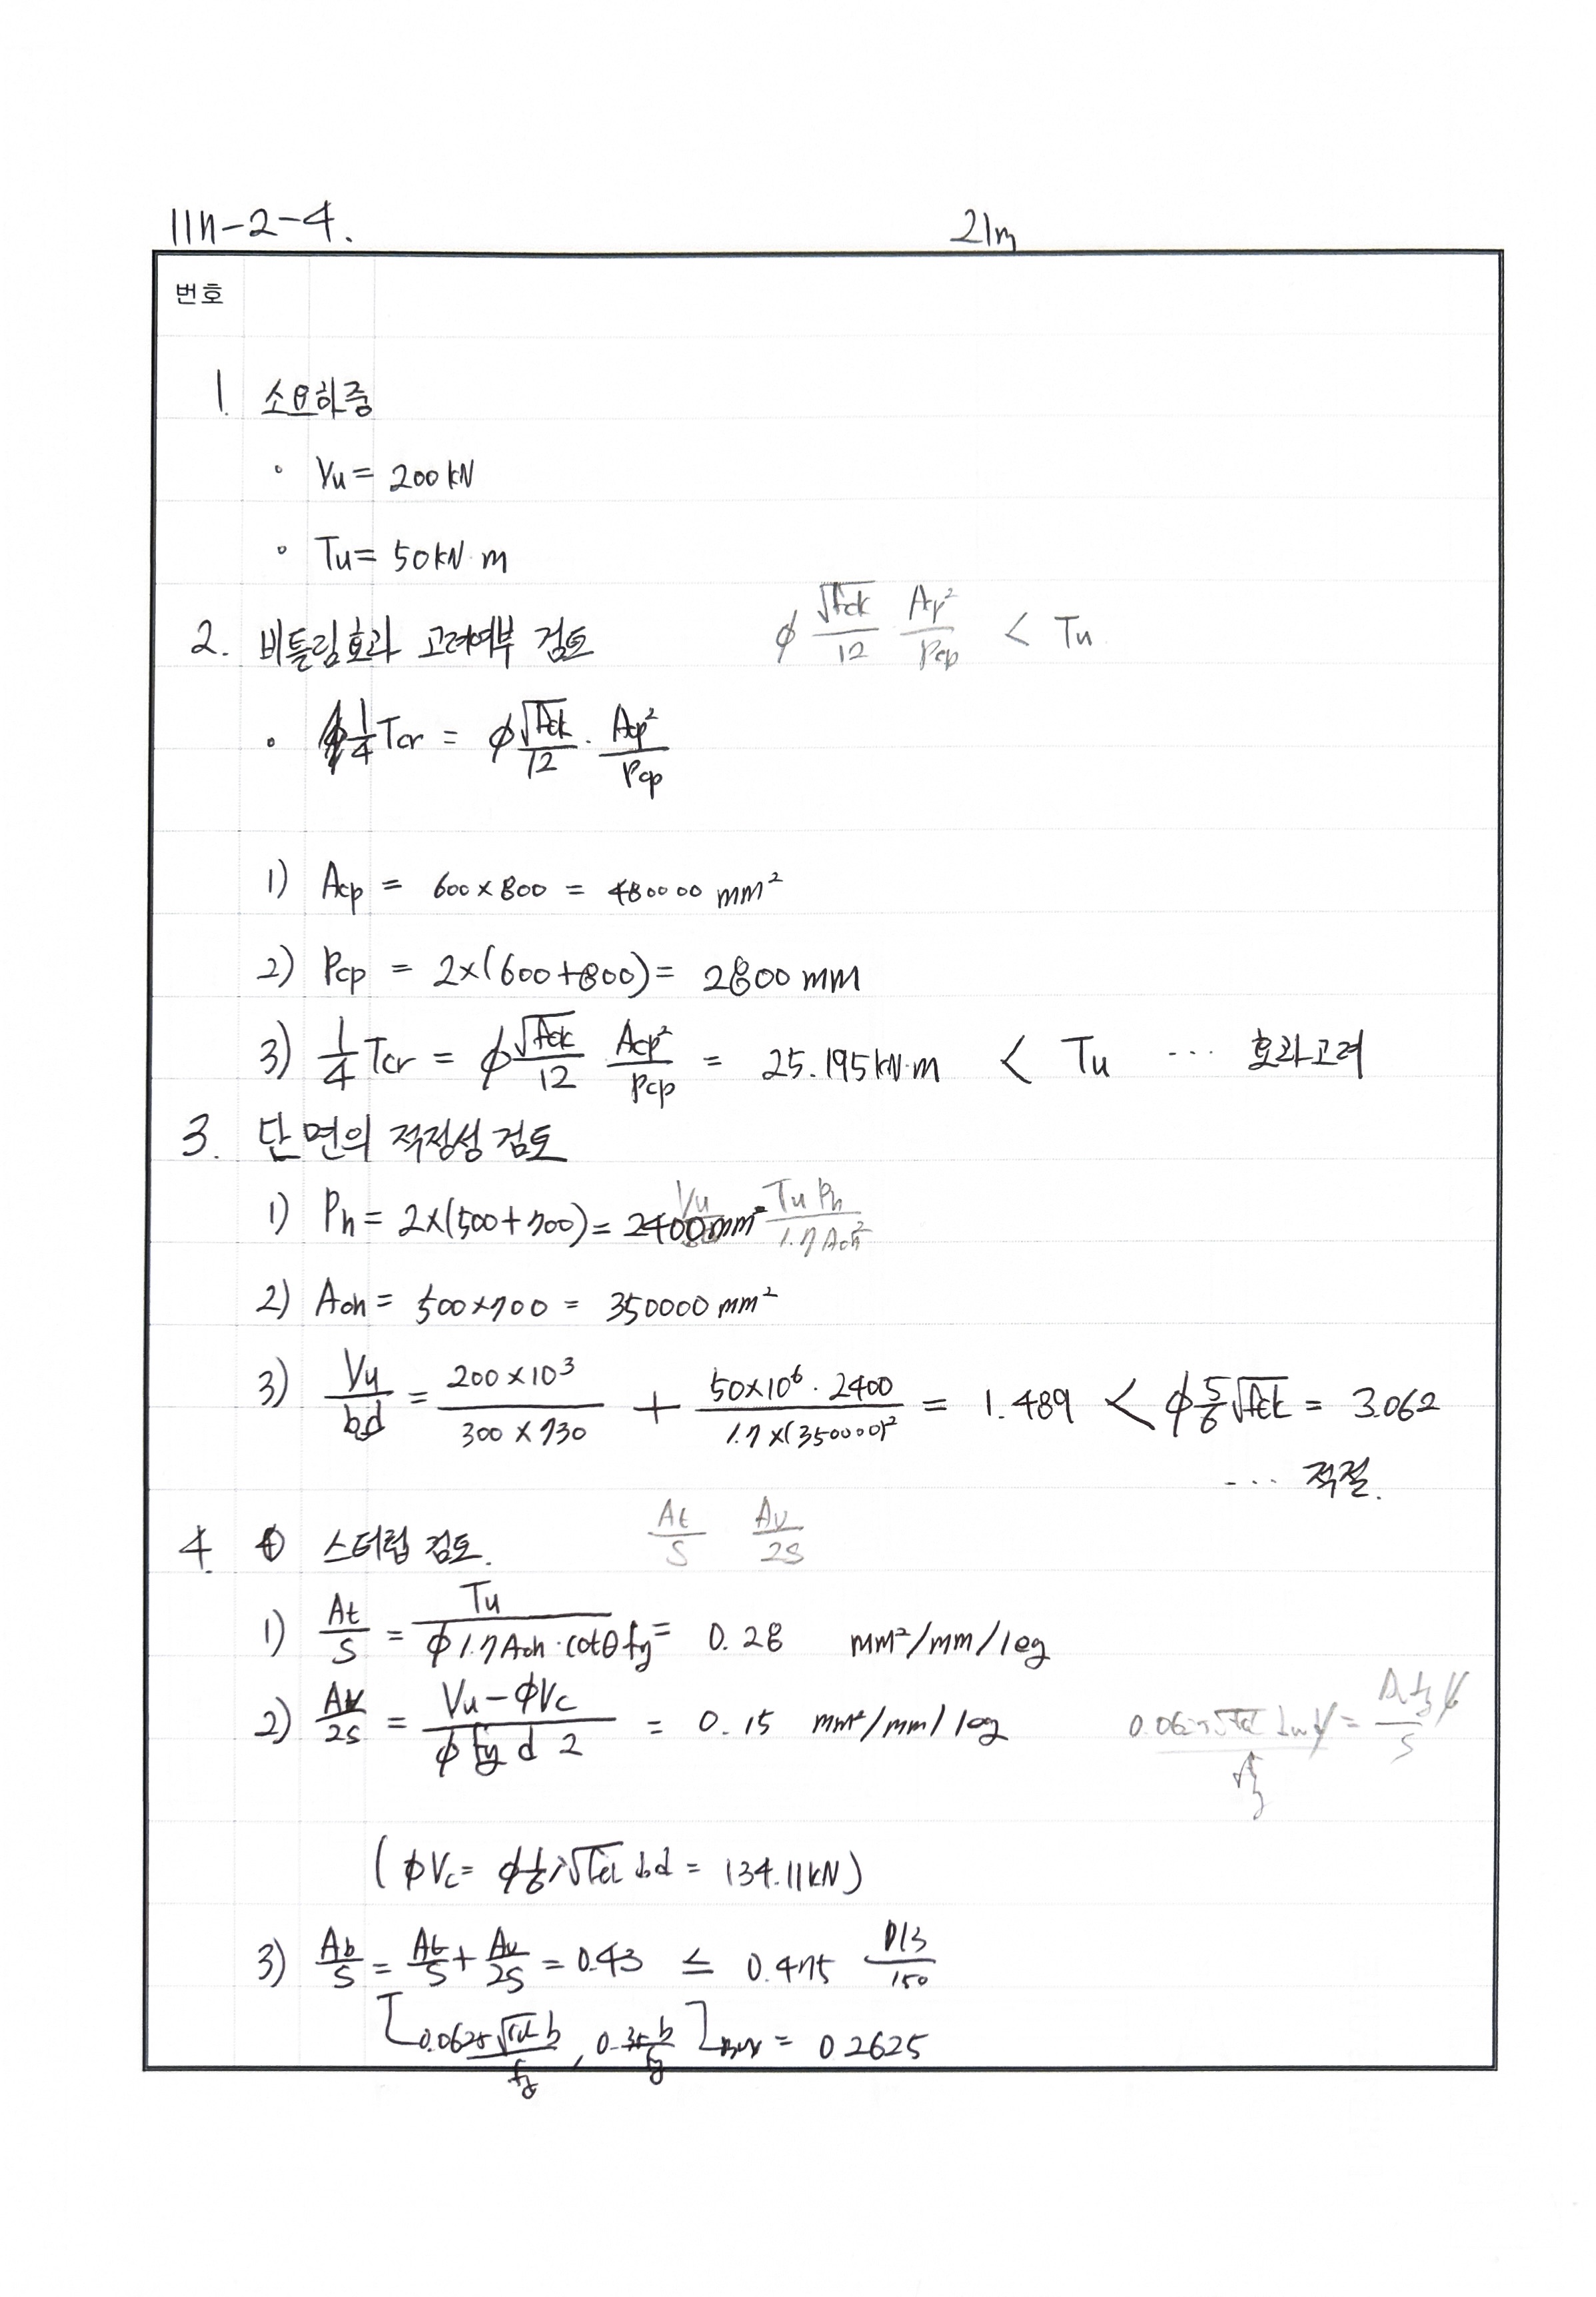 117-2-4. 21m
번호
1. 소요하중
• Vu = 200 kN
• Tu = 50 kN·m
2. 비틀림효과 고려여부 검토 φ √fck/12 Acp²/Pcp < Tu
• 1/4 Tcr = φ √fck/12 · Acp²/Pcp
1) Acp = 600 × 800 = 480000 mm²
2) Pcp = 2×(600+800) = 2800 mm
3) 1/4 Tcr = φ √fck/12 Acp²/Pcp = 25.195 kN·m < Tu ··· 효과고려
3. 단면의 적정성 검토
1) Ph = 2×(500+700) = 2400mm² Vu Tu Ph/1.7 Aoh²
2) Aoh = 500×700 = 350000 mm²
3) Vu/bd = 200×10³/300×730 + 50×10⁶·2400/1.7×(350000)² = 1.489 < φ 5/6 √fck = 3.062
··· 적절.
4. 스터럽 검토. At/S Av/2S
1) At/S = Tu/φ 1.7 Aoh·cotθ fy = 0.28 mm²/mm/leg
2) Av/2S = Vu-φVc/φ fy d 2 = 0.15 mm²/mm/leg
(φVc = φ 1/6 λ√fck bd = 134.11 kN)
3) Ab/S = At/S + Av/2S = 0.43 ≤ 0.475 D13/150
[0.0625 √fck b/fy , 0.35 b/fy]max = 0.2625